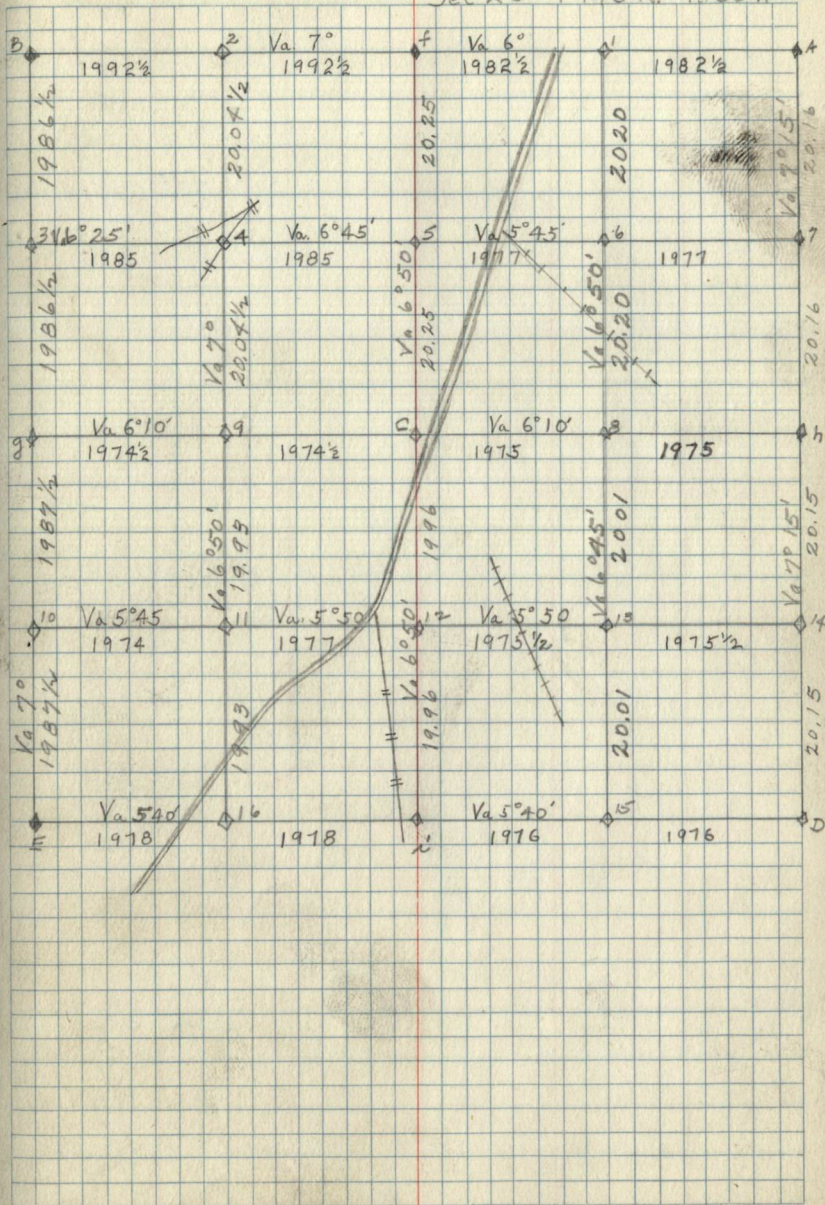 B 2 Va. 7° f Va 6° 1 A
1992½ 1992½ 1982½ 1982½
1986½ 20.04½ 20.25 2020 20.16
3 Va 6°25' 4 Va. 6°45' 5 Va 5°45' 6 7
1985 1985 1977 1977
1986½ Va 7° 20.04½ Va 6°50' 20.25 Va 6°50' 20.20 20.16
g Va 6°10' 9 C Va 6°10' 8 h
1974½ 1974½ 1975 1975
1987½ Va 6°50' 19.93 1996 Va 6°45' 2001 Va 7°15' 20.15
10 Va 5°45 11 Va. 5°50 12 Va 5°50 13 14
1974 1977 1975½ 1975½
Va 7° 1987½ 19.93 Va 6°50' 19.96 20.01 20.15
E Va 5°40' 16 i Va 5°40' 15 D
1978 1978 1976 1976